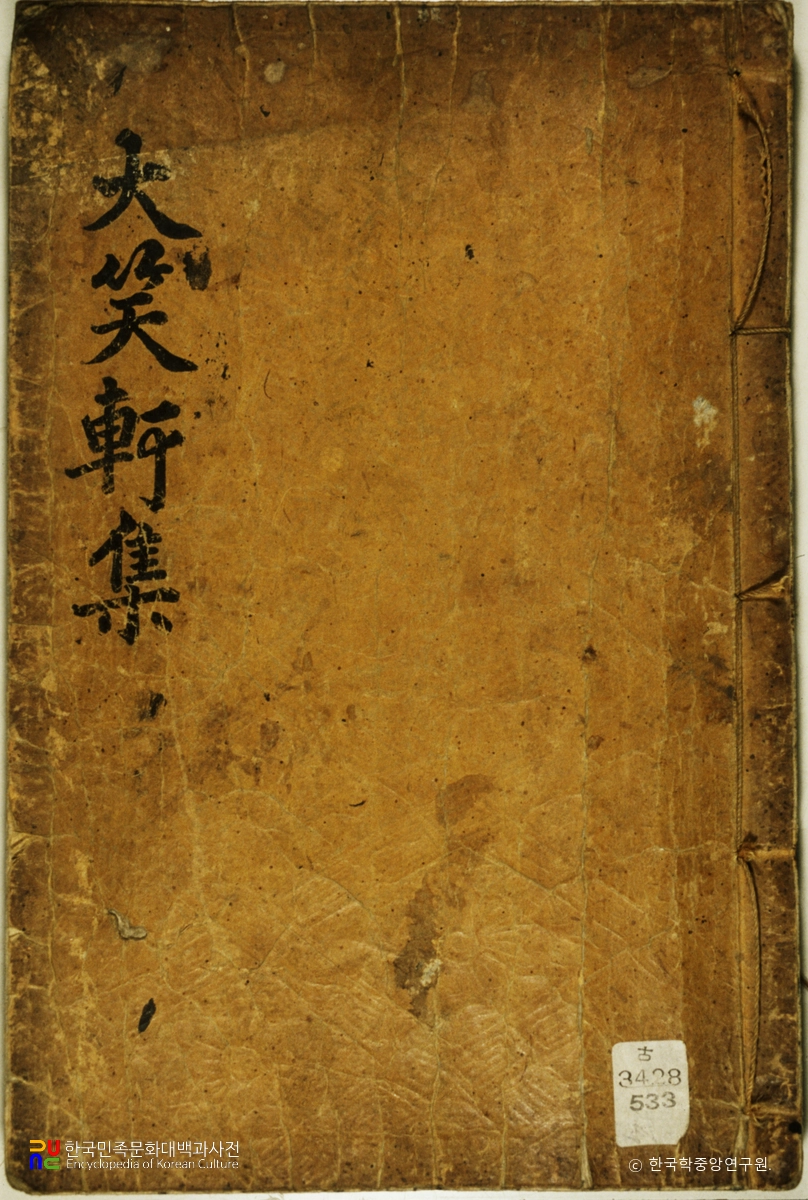 大笑軒集
古
3428
533
한국민족문화대백과사전
Encyclopedia of Korean Culture
© 한국학중앙연구원.